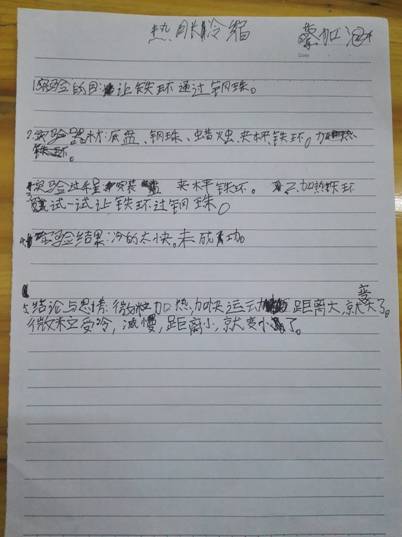 热胀冷缩
1.实验的目:让铁环通过钢珠。
2.实验器材:底盘、钢珠、蜡烛、夹柄、铁环。加热
铁环。
实验过程:安装 夹柄铁环。 2.加热铁环
试一试让铁环过钢珠。
实验结果:冷的太快。未成功。
5.结论与思情:微粒加热,加快运动 距离大,就大了。
微粒立受冷,减慢,距离小,就变小了。